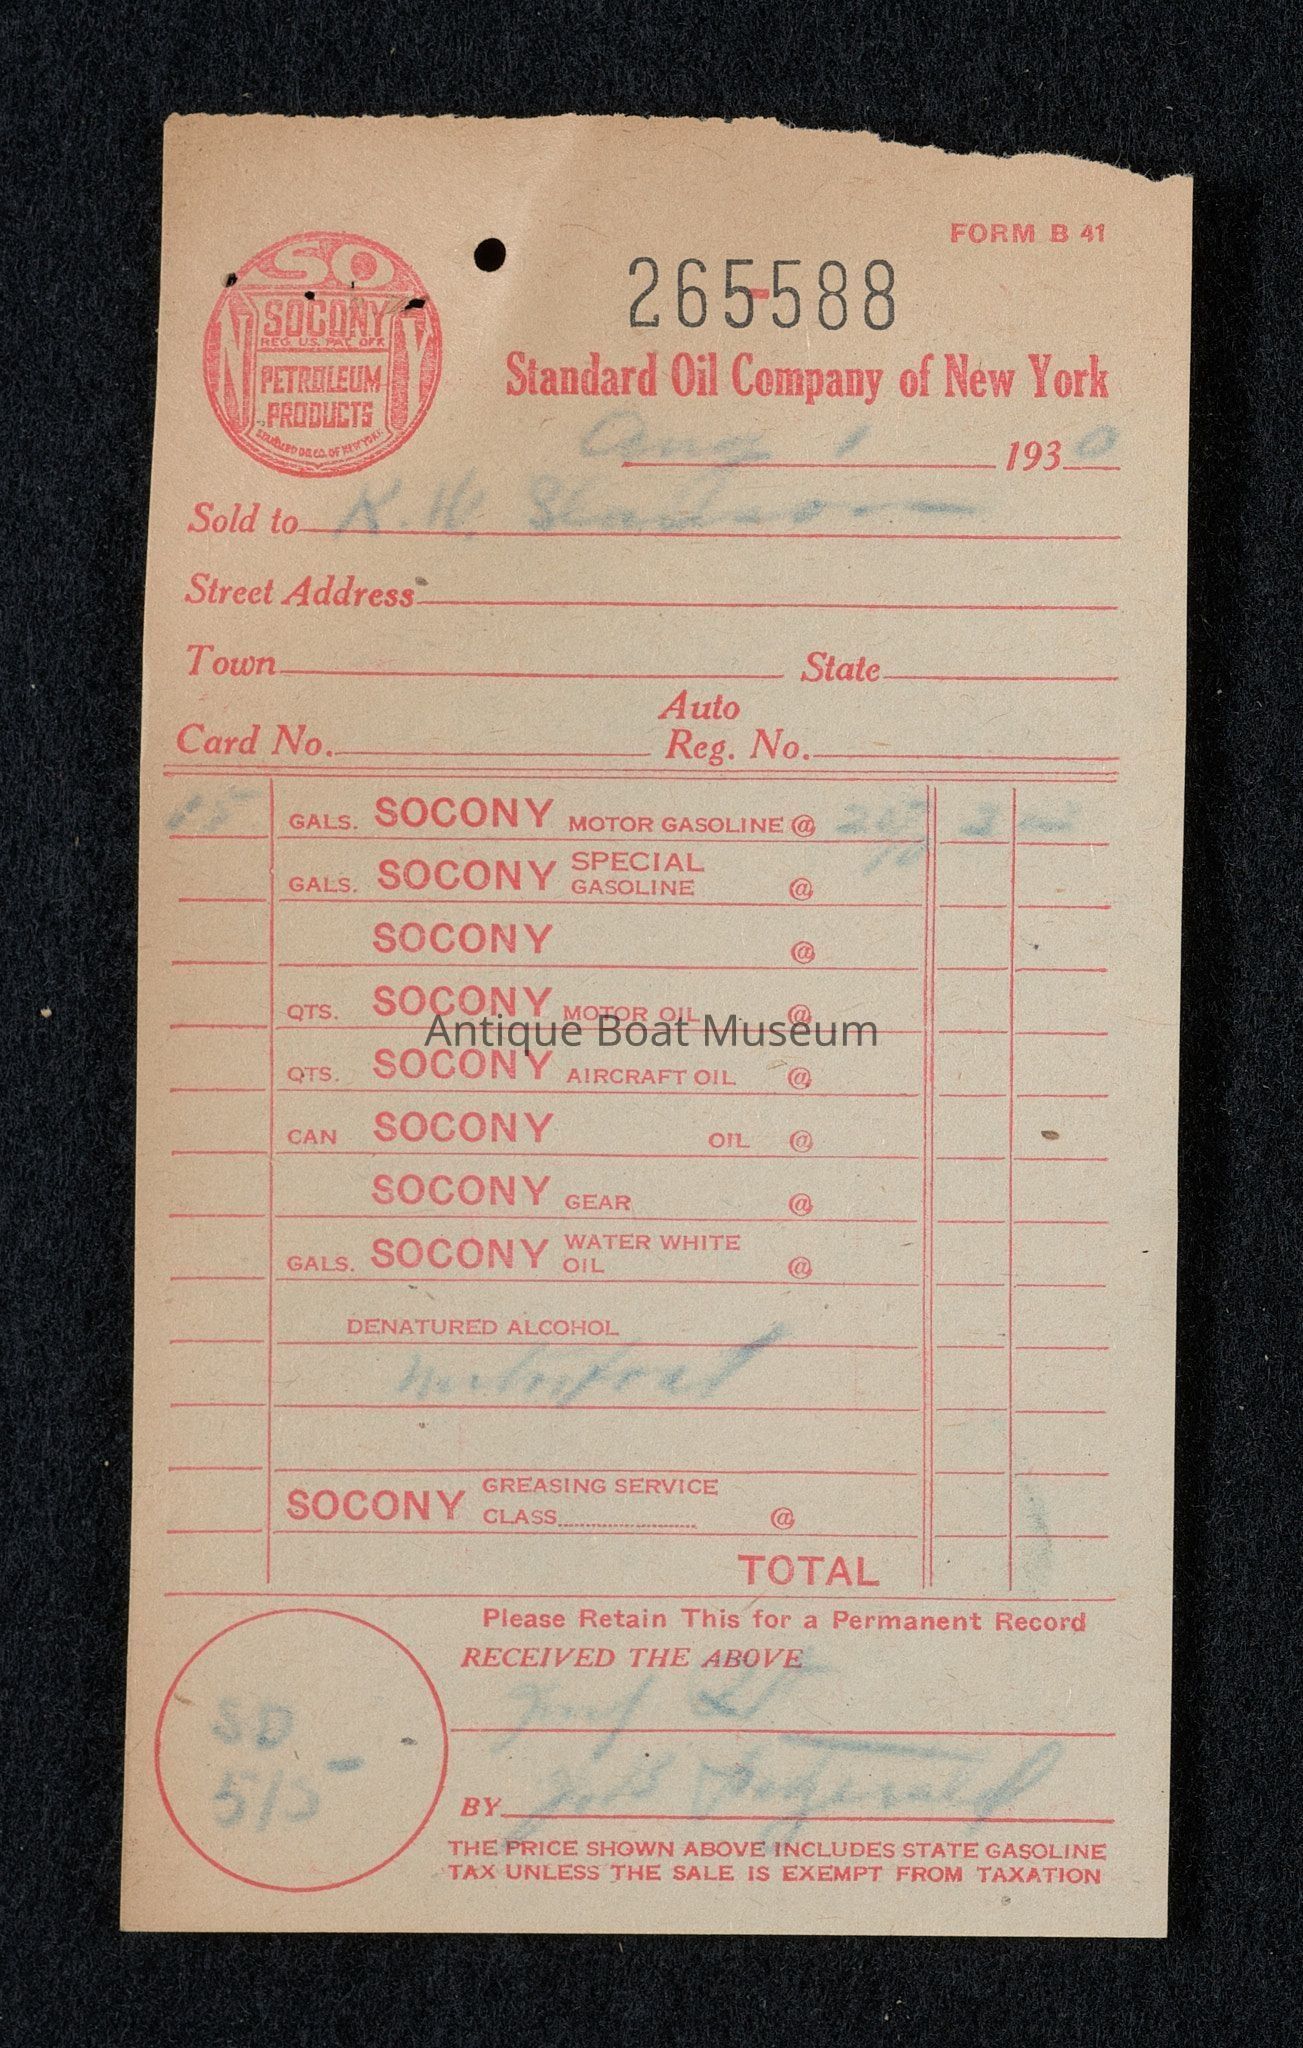 FORM B 41
SO
NY
SOCONY
REG. U.S. PAT. OFF.
PETROLEUM
PRODUCTS
STANDARD OIL CO. OF NEW YORK
265-588
Standard Oil Company of New York
Aug 1 1930
Sold to K. W.
Street Address
Town State
Card No. Auto Reg. No.
15 GALS. SOCONY MOTOR GASOLINE @
GALS. SOCONY SPECIAL GASOLINE @
SOCONY @
QTS. SOCONY MOTOR OIL @
Antique Boat Museum
QTS. SOCONY AIRCRAFT OIL @
CAN SOCONY OIL @
SOCONY GEAR @
GALS. SOCONY WATER WHITE OIL @
DENATURED ALCOHOL
SOCONY GREASING SERVICE CLASS @
TOTAL
Please Retain This for a Permanent Record
RECEIVED THE ABOVE
SD
515
BY Fitzgerald
THE PRICE SHOWN ABOVE INCLUDES STATE GASOLINE
TAX UNLESS THE SALE IS EXEMPT FROM TAXATION